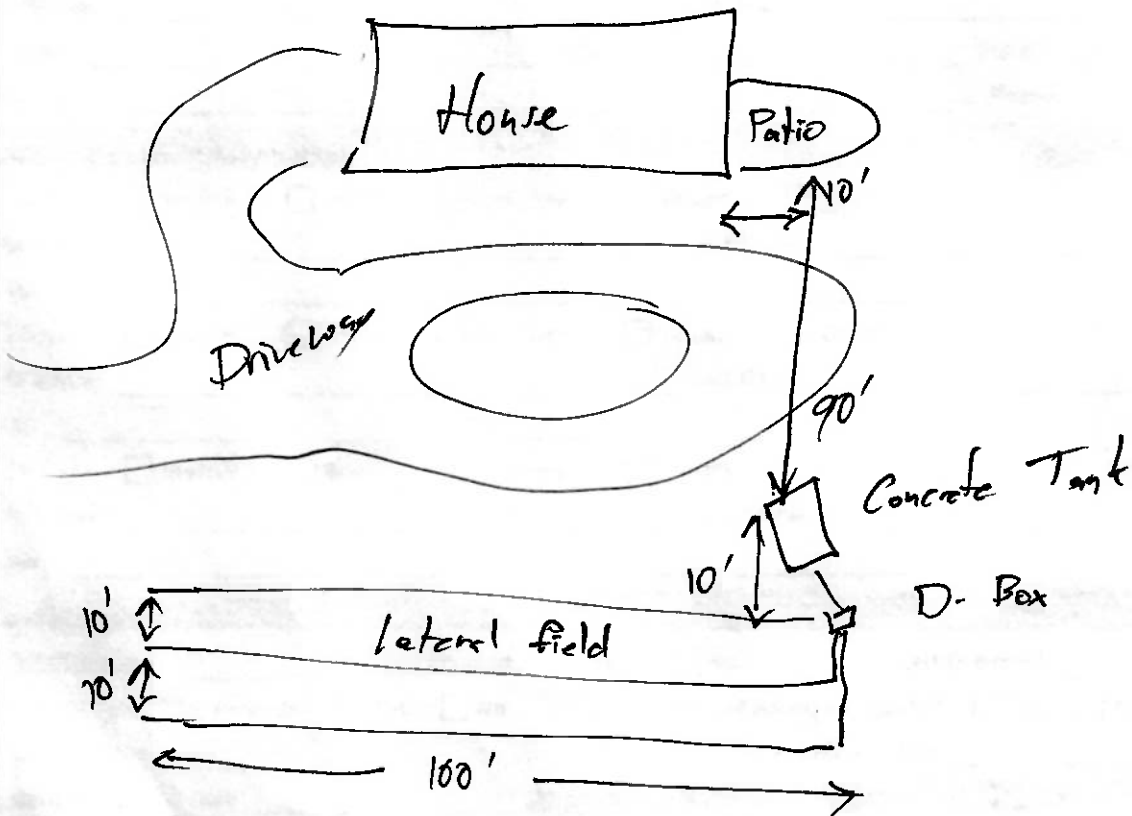 House
Patio
10'
Driveway
90'
Concrete Tank
10'
D-Box
10'
lateral field
10'
100'